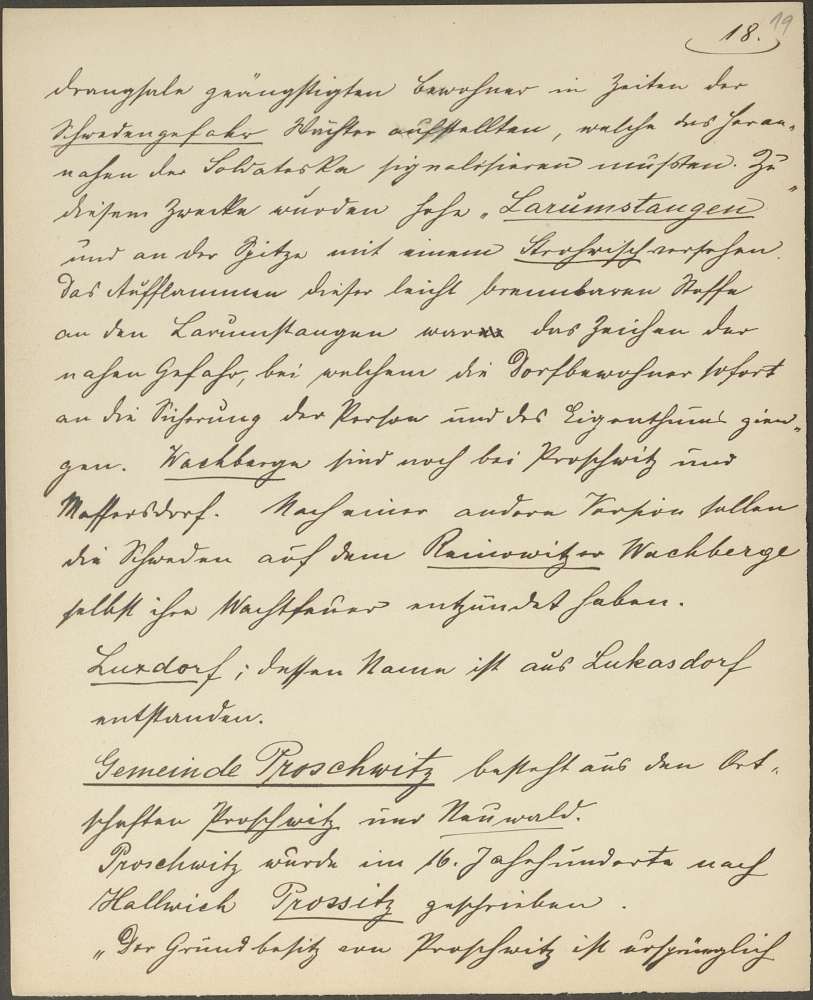 18. 19
drangsale geängstigten Bewohner in Zeiten der
Schwedengefahr Wächter aufstellten, welche das Heran-
nahen der Soldateska signalisieren mußten. Zu
diesem Zwecke wurden hohe „Larumstangen"
und an der Spitze mit einem Strohwisch versehen.
Das Aufflammen dieser leicht brennbaren Stoffe
an den Larumstangen war das Zeichen der
nahen Gefahr, bei welchem die Dorfbewohner sofort
an die Sicherung der Person und des Eigenthums gien-
gen. Wachberge sind noch bei Proschwitz und
Maffersdorf. Nach einer andern Version sollen
die Schweden auf dem Reinowitzer Wachberge
selbst ihre Wachtfeuer entzündet haben.
Luxdorf; dessen Name ist aus Lukasdorf
entstanden.
Gemeinde Proschwitz besteht aus den Ort-
schaften Proschwitz und Neuwald.
Proschwitz wurde im 16. Jahrhunderte nach
Hallwich Prossitz geschrieben.
„Der Grundbesitz von Proschwitz ist ursprünglich